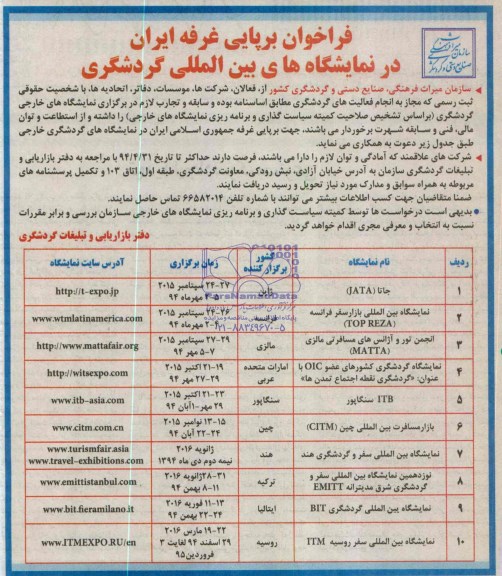 فراخوان برپایی غرفه ایران
در نمایشگاه های بین المللی گردشگری
سازمان میراث فرهنگی، صنایع دستی و گردشگری کشور از، فعالان، شرکت ها، موسسات، دفاتر، اتحادیه ها، با شخصیت حقوقی
ثبت رسمی که مجاز به انجام فعالیت های گردشگری مطابق اساسنامه بوده و سابقه و تجارب لازم در برگزاری نمایشگاه های خارجی
گردشگری (براساس تشخیص صلاحیت کمیته سیاست گذاری و برنامه ریزی نمایشگاه های خارجی) را داشته و از استطاعت و توان
مالی، فنی و سابقه شهرت برخوردار می باشند، جهت برپایی غرفه جمهوری اسلامی ایران در نمایشگاه های گردشگری خارجی
طبق جدول زیر دعوت به همکاری می نماید.
شرکت های علاقمند که آمادگی و توان لازم را دارا می باشند، فرصت دارند حداکثر تا تاریخ ۹۴/۴/۳۱ با مراجعه به دفتر بازاریابی و
تبلیغات گردشگری سازمان به آدرس خیابان آزادی، نبش رودکی، معاونت گردشگری، طبقه اول، اتاق ۱۰۳ و تکمیل پرسشنامه های
مربوطه به همراه سوابق و مدارک مورد نیاز تحویل و رسید دریافت نمایند.
ضمنا متقاضیان جهت کسب اطلاعات بیشتر می توانند با شماره تلفن ۶۶۵۸۲۰۱۴ تماس حاصل نمایند.
بدیهی است درخواست ها توسط کمیته سیاست گذاری و برنامه ریزی نمایشگاه های خارجی سازمان بررسی و برابر مقررات
نسبت به انتخاب و معرفی مجری اقدام خواهد گردید.
دفتر بازاریابی و تبلیغات گردشگری
ردیف نام نمایشگاه کشور برگزار کننده زمان برگزاری آدرس سایت نمایشگاه
۱ جاتا (JATA) ژاپن ۲۴-۲۷ سپتامبر ۲۰۱۵ مهرماه ۹۴ http://t-expo.jp
۲ نمایشگاه بین المللی بازارسفر فرانسه (TOP REZA) فرانسه ۲۴-۲۶ سپتامبر ۲۰۱۵ مهرماه ۹۴ www.wtmlatinamerica.com
۳ انجمن تور و آژانس های مسافرتی مالزی (MATTA) مالزی ۲۷-۲۹ سپتامبر ۲۰۱۵ ۵-۷ مهر ۹۴ http://www.mattafair.org
۴ نمایشگاه گردشگری کشورهای عضو OIC با عنوان: «گردشگری نقطه اجتماع تمدن ها» امارات متحده عربی ۱۹-۲۱ اکتبر ۲۰۱۵ ۲۷-۲۹ مهر ۹۴ http://witsexpo.com
۵ ITB سنگاپور سنگاپور ۲۱-۲۳ اکتبر ۲۰۱۵ ۲۹ مهر-۱ آبان ۹۴ www.itb-asia.com
۶ بازارمسافرت بین المللی چین (CITM) چین ۱۳-۱۵ نوامبر ۲۰۱۵ ۲۲-۲۴ آبان ۹۴ www.citm.com.cn
۷ نمایشگاه بین المللی سفر و گردشگری هند هند ژانویه ۲۰۱۶ نیمه دوم دی ماه ۱۳۹۴ www.turismfair.asia www.travel-exhibitions.com
۸ نوزدهمین نمایشگاه بین المللی سفر و گردشگری شرق مدیترانه EMITT ترکیه ۲۸-۳۱ ژانویه ۲۰۱۶ ۸-۱۱ بهمن ۹۴ www.emittistanbul.com
۹ نمایشگاه بین المللی گردشگری BIT ایتالیا ۱۱-۱۳ فوریه ۲۰۱۶ ۲۲-۲۴ بهمن ۹۴ www.bit.fieramilano.it
۱۰ نمایشگاه بین المللی سفر روسیه ITM روسیه ۱۹-۲۲ مارس ۲۰۱۶ ۲۹ اسفند ۹۴ لغایت ۳ فروردین۹۵ www.ITMEXPO.RU/en
ParsNamadData
۰۲۱-۸۸۳۴۹۶۷۰-۵